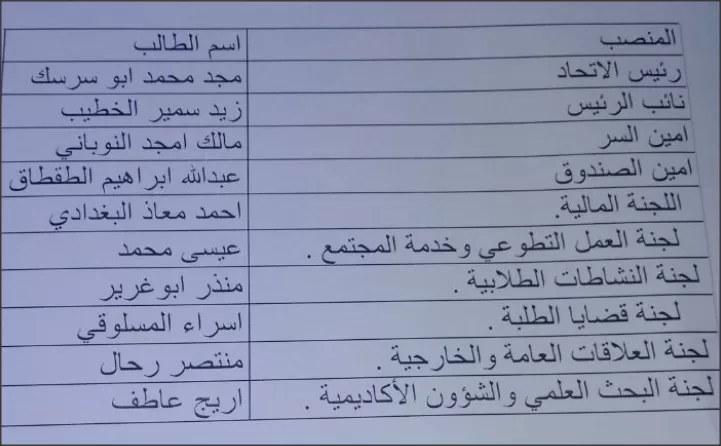 المنصب اسم الطالب
رئيس الاتحاد مجد محمد ابو سرسك
نائب الرئيس زيد سمير الخطيب
امين السر مالك امجد النوباني
امين الصندوق عبدالله ابراهيم الطقطاق
اللجنة المالية. احمد معاذ البغدادي
لجنة العمل التطوعي وخدمة المجتمع . عيسى محمد
لجنة النشاطات الطلابية . منذر ابوغرير
لجنة قضايا الطلبة . اسراء المسلوقي
لجنة العلاقات العامة والخارجية . منتصر رحال
لجنة البحث العلمي والشؤون الأكاديمية . اريج عاطف